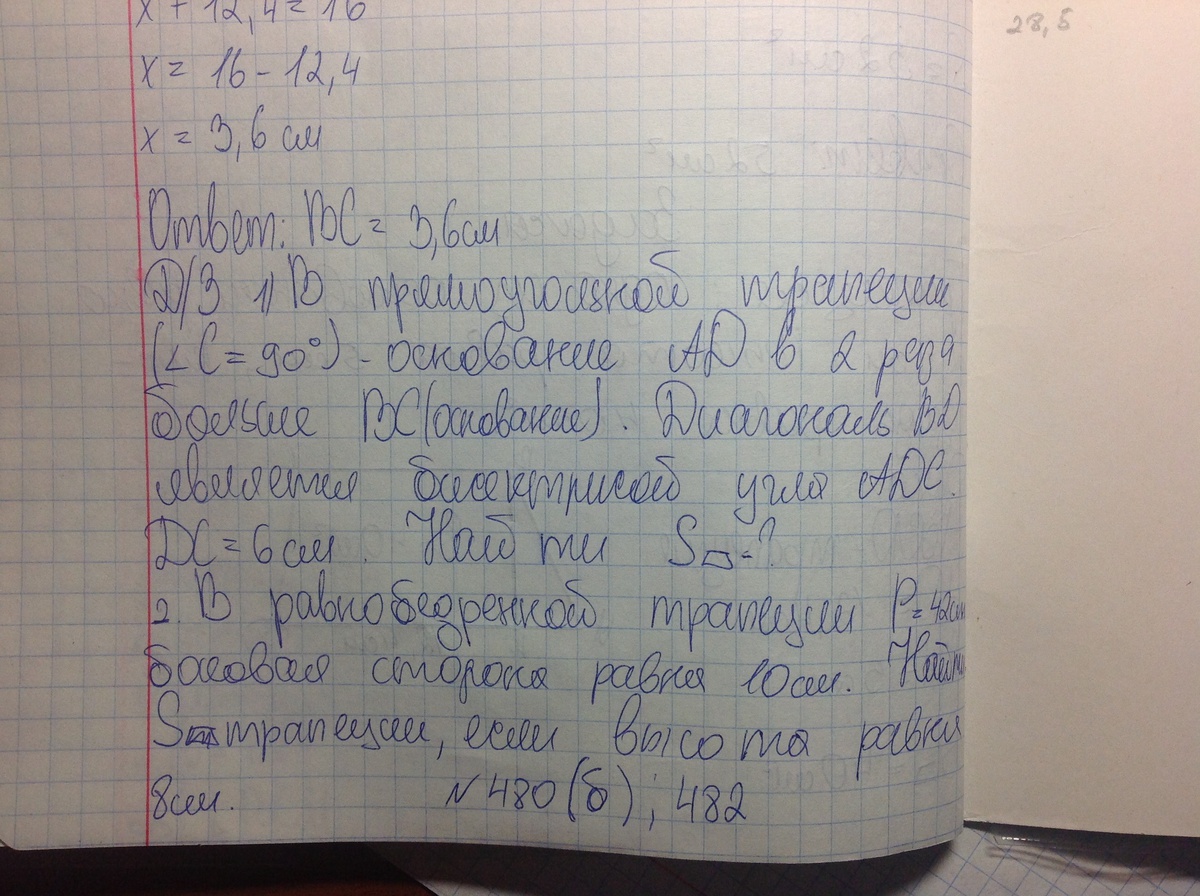 x + 12,4 = 16
x = 16 - 12,4
x = 3,6 см
Ответ: BC = 3,6 см
Д/З 1) В прямоугольной трапеции
(∠C = 90°) - основание AD в 2 раза
больше BC (основание). Диагональ BD
является биссектрисой угла ADC.
DC = 6 см. Найти S - ?
2. В равнобедренной трапеции P = 42 см
боковая сторона равна 10 см. Найти
S трапеции, если высота равна
8 см. N 480 (б); 482
28,5